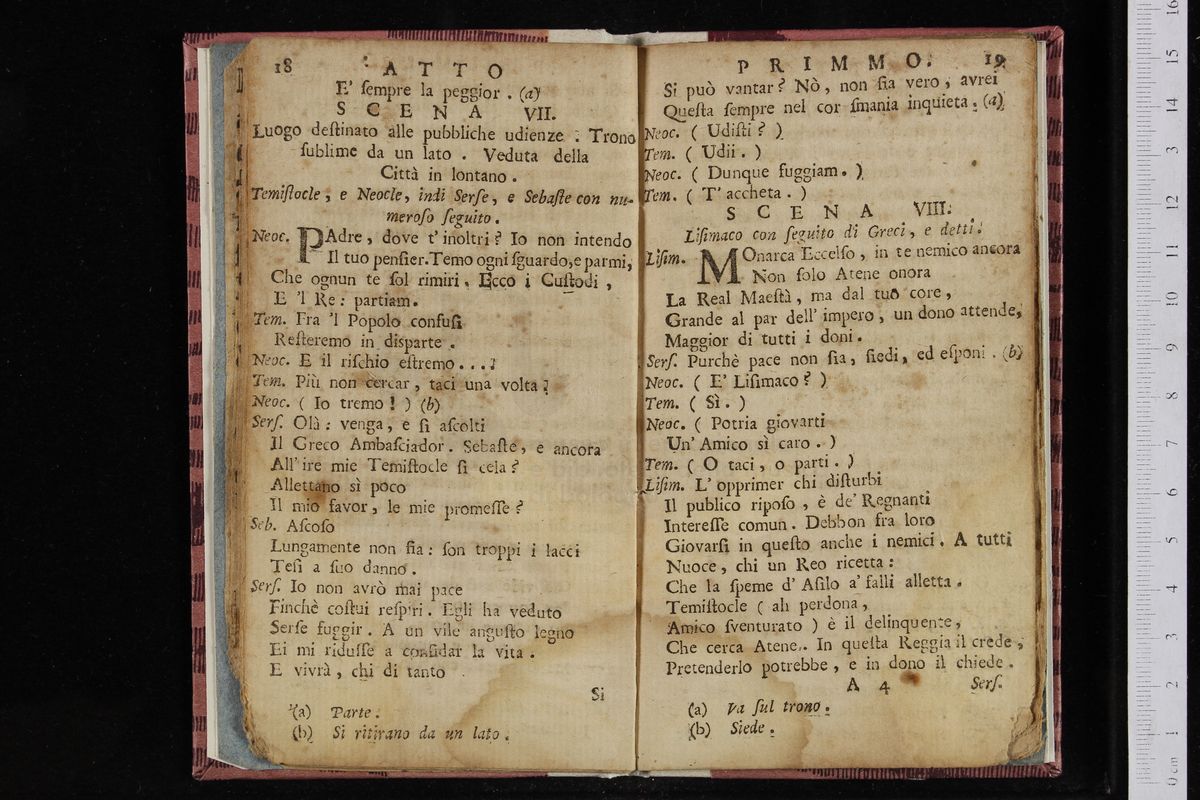 18 ATTO
E' ſempre la peggior . (a)
SCENA VII.
Luogo deſtinato alle pubbliche udienze . Trono
ſublime da un lato . Veduta della
Città in lontano .
Temiſtocle , e Neocle, indi Serſe, e Sebaſte con nu-
meroſo ſeguito .
Neoc. PAdre, dove t' inoltri? Io non intendo
Il tuo penſier. Temo ogni ſguardo, e parmi,
Che ognun te ſol rimiri . Ecco i Cuſtodi ,
E 'l Re: partiam.
Tem. Fra 'l Popolo confuſi
Reſteremo in diſparte .
Neoc. E il riſchio eſtremo . . . .
Tem. Più non cercar, taci una volta.
Neoc. ( Io tremo! ) (b)
Serſ. Olà: venga, e ſi aſcolti
Il Greco Ambaſciador. Sebaſte, e ancora
All' ire mie Temiſtocle ſi cela?
Allettano sì poco
Il mio favor, le mie promeſſe?
Seb. Aſcoſo
Lungamente non ſia: ſon troppi i lacci
Teſi a ſuo danno.
Serſ. Io non avrò mai pace
Finchè coſtui reſpiri. Egli ha veduto
Serſe fuggir. A un vile anguſto legno
Ei mi riduſſe a confidar la vita.
E vivrà, chi di tanto
Si
(a) Parte.
(b) Si ritirano da un lato.
PRIMMO. 19
Si può vantar? Nò, non ſia vero, avrei
Queſta ſempre nel cor ſmania inquieta. (a)
Neoc. ( Udiſti? )
Tem. ( Udii. )
Neoc. ( Dunque fuggiam. )
Tem. ( T' accheta. )
SCENA VIII.
Liſimaco con ſeguito di Greci, e detti.
Liſim. MOnarca Eccelſo, in te nemico ancora
Non ſolo Atene onora
La Real Maeſtà, ma dal tuo core,
Grande al par dell' impero, un dono attende,
Maggior di tutti i doni.
Serſ. Purchè pace non ſia, ſiedi, ed eſponi. (b)
Neoc. ( E' Liſimaco? )
Tem. ( Sì. )
Neoc. ( Potria giovarti
Un' Amico sì caro. )
Tem. ( O taci, o parti. )
Liſim. L' opprimer chi diſturbi
Il publico ripoſo, è de' Regnanti
Intereſſe comun. Debbon fra loro
Giovarſi in queſto anche i nemici. A tutti
Nuoce, chi un Reo ricetta:
Che la ſpeme d' Aſilo a' falli alletta.
Temiſtocle ( ah perdona,
Amico ſventurato ) è il delinquente,
Che cerca Atene. In queſta Reggia il crede,
Pretenderlo potrebbe, e in dono il chiede.
A 4 Serſ.
(a) Va ſul trono.
(b) Siede.